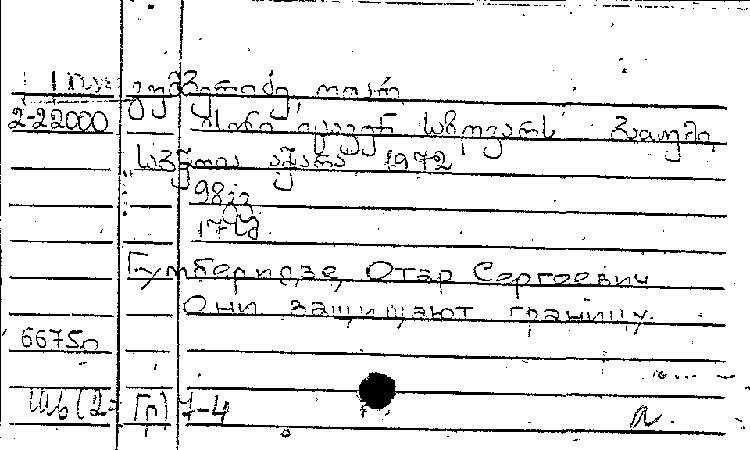 გუმბერიძე, ოთარ
2-22000 ისინი იცავენ საზღვარს ბათუმი
საბჭოთა აჭარა 1972
98გვ
17სმ
Гумберидзе, Отар Сергеевич
Они защищают границу.
66750
(2= Гр) 7-4